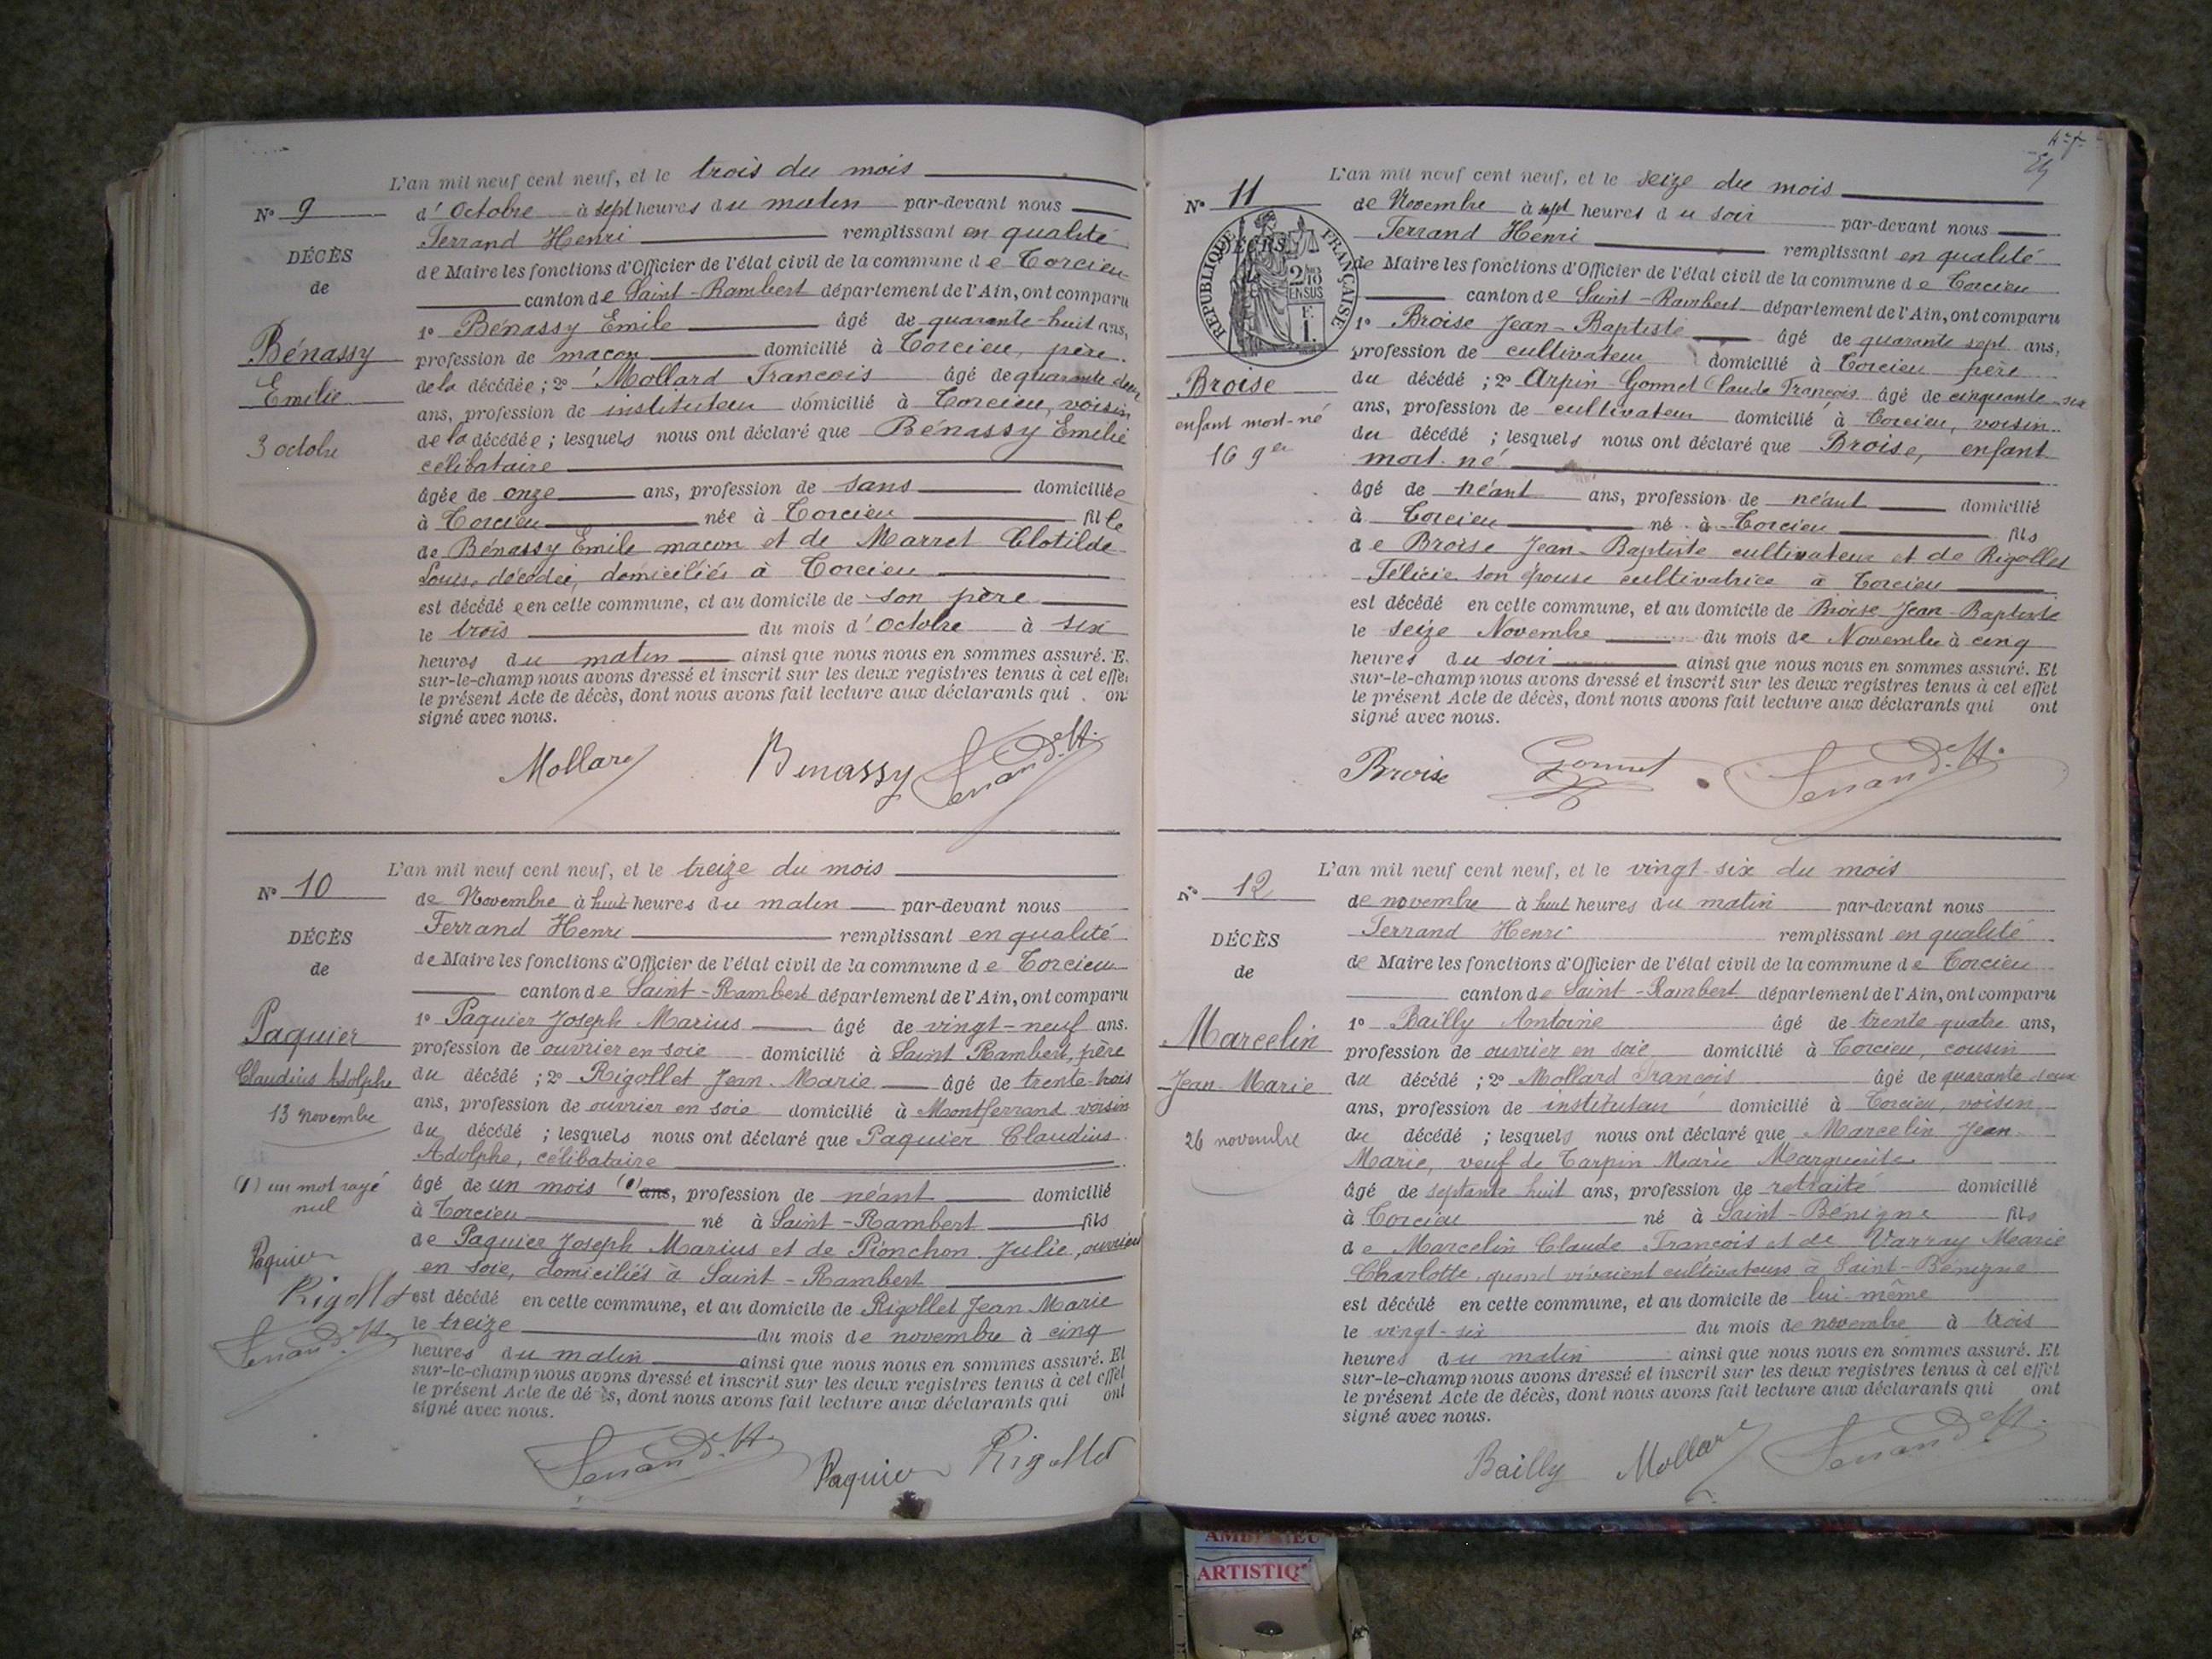 L'an mil neuf cent neuf, et le trois du mois
N° 9
d'Octobre à sept heures du matin par-devant nous
Ferrand Henri remplissant en qualité
DÉCÈS
de Maire les fonctions d'Officier de l'état civil de la commune de Torcieu
de
canton de Saint-Rambert département de l'Ain, ont comparu
1° Bénassy Emile âgé de quarante-huit ans,
Bénassy
profession de maçon domicilié à Torcieu, père
Emilie
de la décédée; 2° Mollard François âgé de quarante deux
ans, profession de instituteur domicilié à Torcieu, voisin
3 octobre
de la décédée; lesquels nous ont déclaré que Bénassy Emilie
célibataire
âgée de onze ans, profession de sans domiciliée
à Torcieu née à Torcieu fille
de Bénassy Emile maçon et de Marret Clotilde
Louise décédée, domiciliés à Torcieu
est décédée en cette commune, et au domicile de son père
le trois du mois d'Octobre à six
heures du matin ainsi que nous nous en sommes assuré. E
sur-le-champ nous avons dressé et inscrit sur les deux registres tenus à cet effe
le présent Acte de décès, dont nous avons fait lecture aux déclarants qui on
signé avec nous.
Mollard Benassy Ferrand H.
L'an mil neuf cent neuf, et le treize du mois
N° 10
de Novembre à huit heures du matin par-devant nous
Ferrand Henri remplissant en qualité
DÉCÈS
de Maire les fonctions d'Officier de l'état civil de la commune de Torcieu
de
canton de Saint-Rambert département de l'Ain, ont comparu
1° Paquier Joseph Marius âgé de vingt-neuf ans.
Paquier
profession de ouvrier en soie domicilié à Saint Rambert, père
Claudius Adolphe
du décédé; 2° Rigollet Jean-Marie âgé de trente-trois
13 novembre
ans, profession de ouvrier en soie domicilié à Montferrand voisin
du décédé; lesquels nous ont déclaré que Paquier Claudius
Adolphe, célibataire
(1) un mot rayé
nul
âgé de un mois (1) ans, profession de néant domicilié
à Torcieu né à Saint-Rambert fils
de Paquier Joseph Marius et de Pionchon Julie, ouvriers
Paquier
en soie, domiciliés à Saint-Rambert
Rigollet
est décédé en cette commune, et au domicile de Rigollet Jean Marie
Ferrand H.
le treize du mois de novembre à cinq
heures du matin ainsi que nous nous en sommes assuré. Et
sur-le-champ nous avons dressé et inscrit sur les deux registres tenus à cet effet
le présent Acte de décès, dont nous avons fait lecture aux déclarants qui ont
signé avec nous.
Ferrand H. Paquier Rigollet
L'an mil neuf cent neuf, et le seize du mois
N° 11
de Novembre à sept heures du soir par-devant nous
Ferrand Henri remplissant en qualité
RÉPUBLIQUE FRANÇAISE
2/10 EN SUS
F. 1.
de Maire les fonctions d'Officier de l'état civil de la commune de Torcieu
canton de Saint-Rambert département de l'Ain, ont comparu
1° Broise Jean-Baptiste âgé de quarante sept ans,
profession de cultivateur domicilié à Torcieu père
Broise
du décédé; 2° Arpin-Gonnet Claude François âgé de cinquante-six
enfant mort-né
ans, profession de cultivateur domicilié à Torcieu, voisin
16 9bre
du décédé; lesquels nous ont déclaré que Broise, enfant
mort-né
âgé de néant ans, profession de néant domicilié
à Torcieu né à Torcieu fils
de Broise Jean-Baptiste cultivateur et de Rigollet
Félicie son épouse cultivatrice à Torcieu
est décédé en cette commune, et au domicile de Broise Jean-Baptiste
le seize Novembre du mois de Novembre à cinq
heures du soir ainsi que nous nous en sommes assuré. Et
sur-le-champ nous avons dressé et inscrit sur les deux registres tenus à cet effet
le présent Acte de décès, dont nous avons fait lecture aux déclarants qui ont
signé avec nous.
Broise Gonnet Ferrand H.
L'an mil neuf cent neuf, et le vingt-six du mois
N° 12
de novembre à huit heures du matin par-devant nous
Ferrand Henri remplissant en qualité
DÉCÈS
de Maire les fonctions d'Officier de l'état civil de la commune de Torcieu
de
canton de Saint-Rambert département de l'Ain, ont comparu
1° Bailly Antoine âgé de trente quatre ans,
Marcelin
profession de ouvrier en soie domicilié à Torcieu, cousin
Jean-Marie
du décédé; 2° Mollard François âgé de quarante deux
ans, profession de instituteur domicilié à Torcieu, voisin
26 novembre
du décédé; lesquels nous ont déclaré que Marcelin Jean
Marie, veuf de Tarpin Marie Marguerite
âgé de septante huit ans, profession de retraité domicilié
à Torcieu né à Saint-Bénigne fils
de Marcelin Claude François et de Varray Marie
Charlotte, quand vivaient cultivateurs à Saint-Bénigne
est décédé en cette commune, et au domicile de lui-même
le vingt-six du mois de novembre à trois
heures du matin ainsi que nous nous en sommes assuré. Et
sur-le-champ nous avons dressé et inscrit sur les deux registres tenus à cet effet
le présent Acte de décès, dont nous avons fait lecture aux déclarants qui ont
signé avec nous.
Bailly Mollard Ferrand H.
AMBERIEU
ARTISTIQ